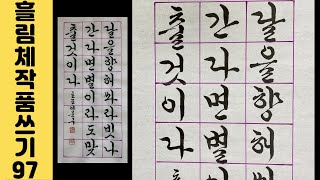 흘림체작품쓰기97
달을향해쏴라빗나
간다면별이라도맞
출것이다
달을향해
간다면별
출것이다